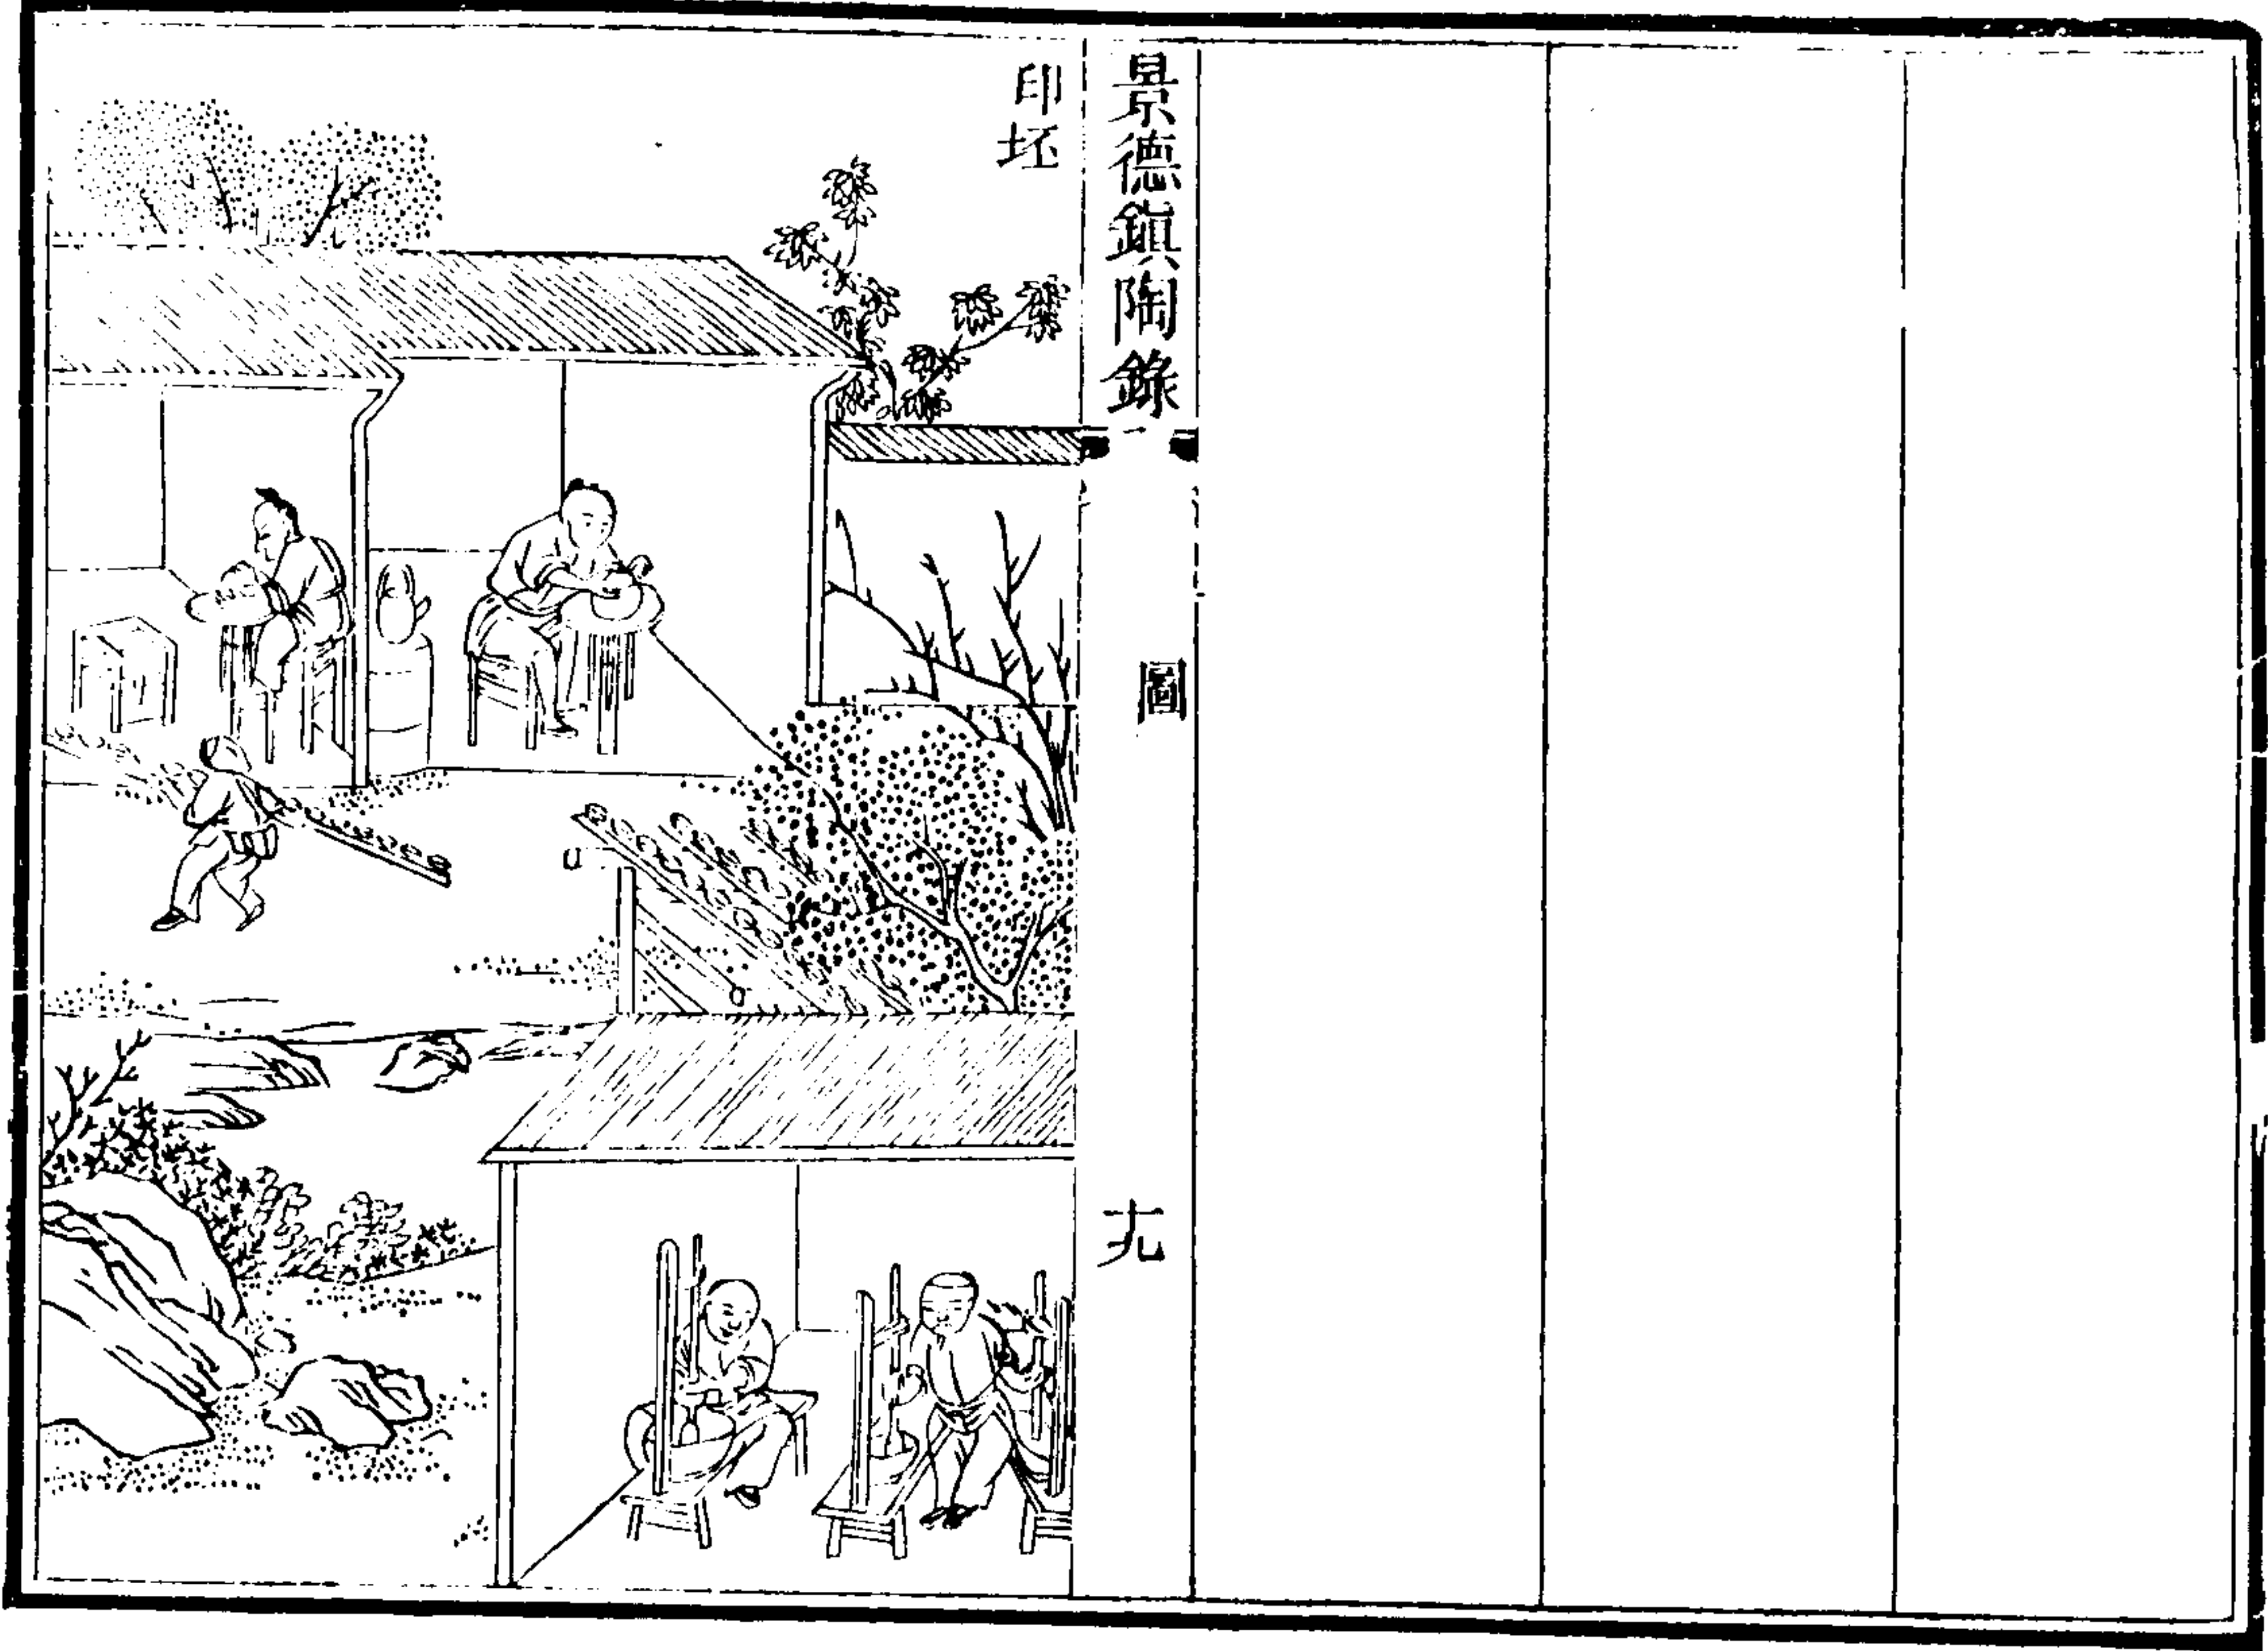 景德鎭陶錄
圖
十九
印坯